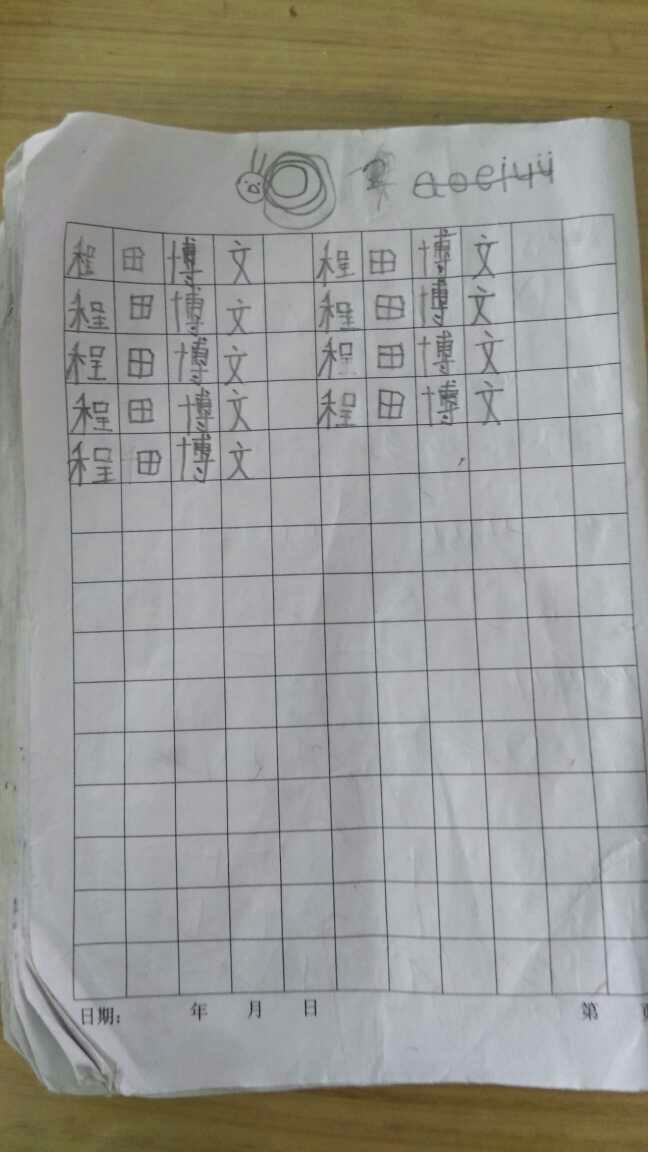 a o e i u ü
程田博文 程田博文
程田博文 程田博文
程田博文 程田博文
程田博文 程田博文
程田博文
日期: 年 月 日 第